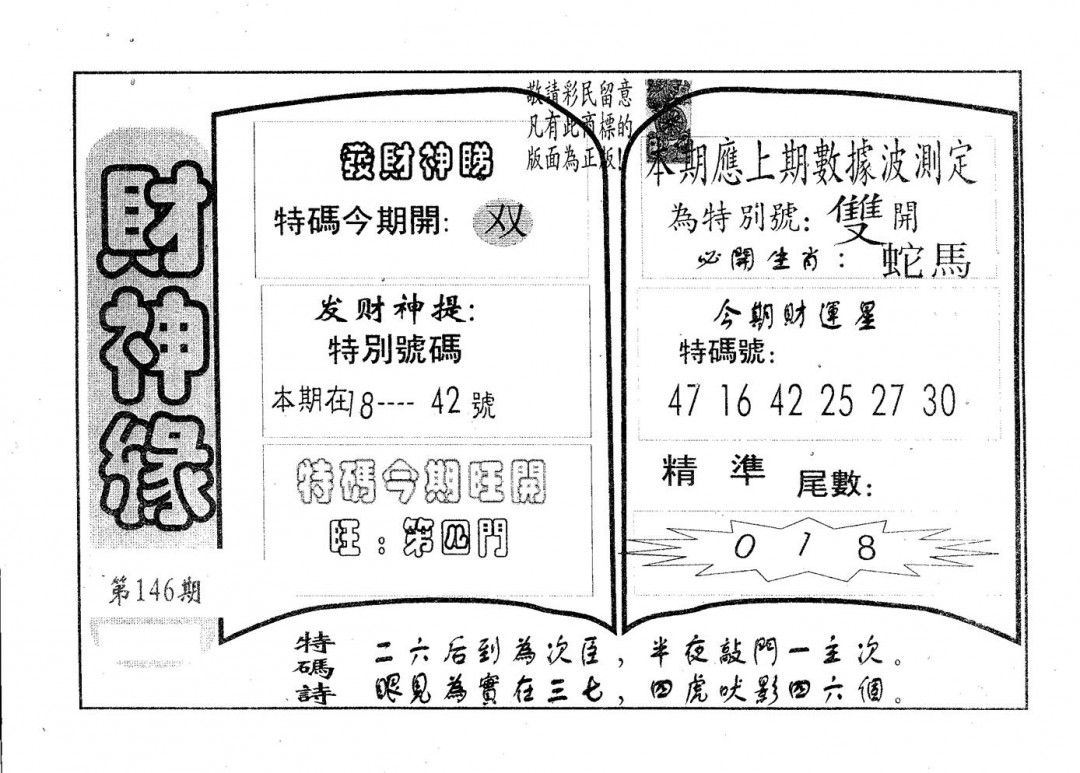 財神緣
第146期
敬請彩民留意
凡有此商標的
版面為正版!
發財神睇
特碼今期開: 双
发财神提:
特別號碼
本期在18---- 42號
特碼今期旺開
旺:第四門
本期應上期數據波測定
為特別號:雙開
必開生肖: 蛇馬
今期財運星
特碼號:
47 16 42 25 27 30
精準 尾數:
0 1 8
特碼詩
二六后到為次臣,半夜敲門一主次。
眼見為實在三七,四虎吠影四六個。